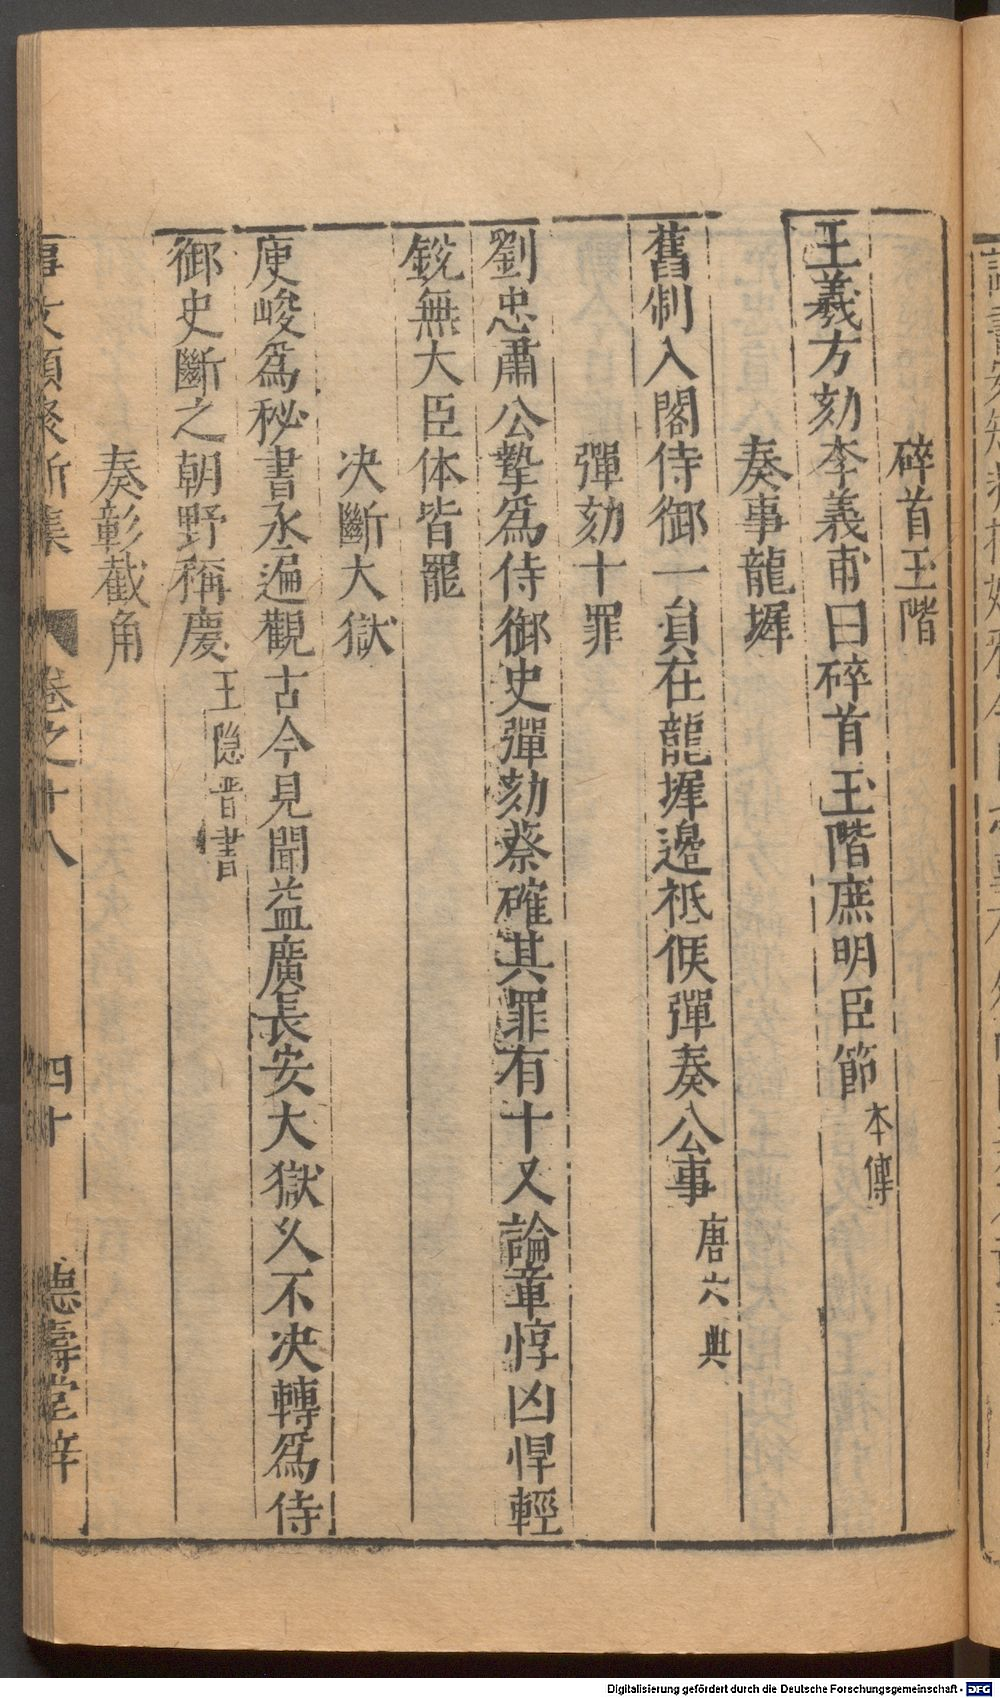 碎首玉階
王義方劾李義甫曰碎首玉階庶明臣節本傳
奏事龍墀
舊制入閣侍御一負在龍墀邉祇候彈奏公事唐六典
彈劾十罪
劉忠肅公摯爲侍御史彈劾蔡確其罪有十又論章惇凶悍輕
銳無大臣体皆罷
决斷大獄
庾峻爲秘書丞遍觀古今見聞益廣長安大獄久不决轉爲侍
御史斷之朝野稱慶王隐晋書
奏彰截角
事文類聚新集 卷之十八 四十 德壽堂梓
Digitalisierung gefördert durch die Deutsche Forschungsgemeinschaft - DFG